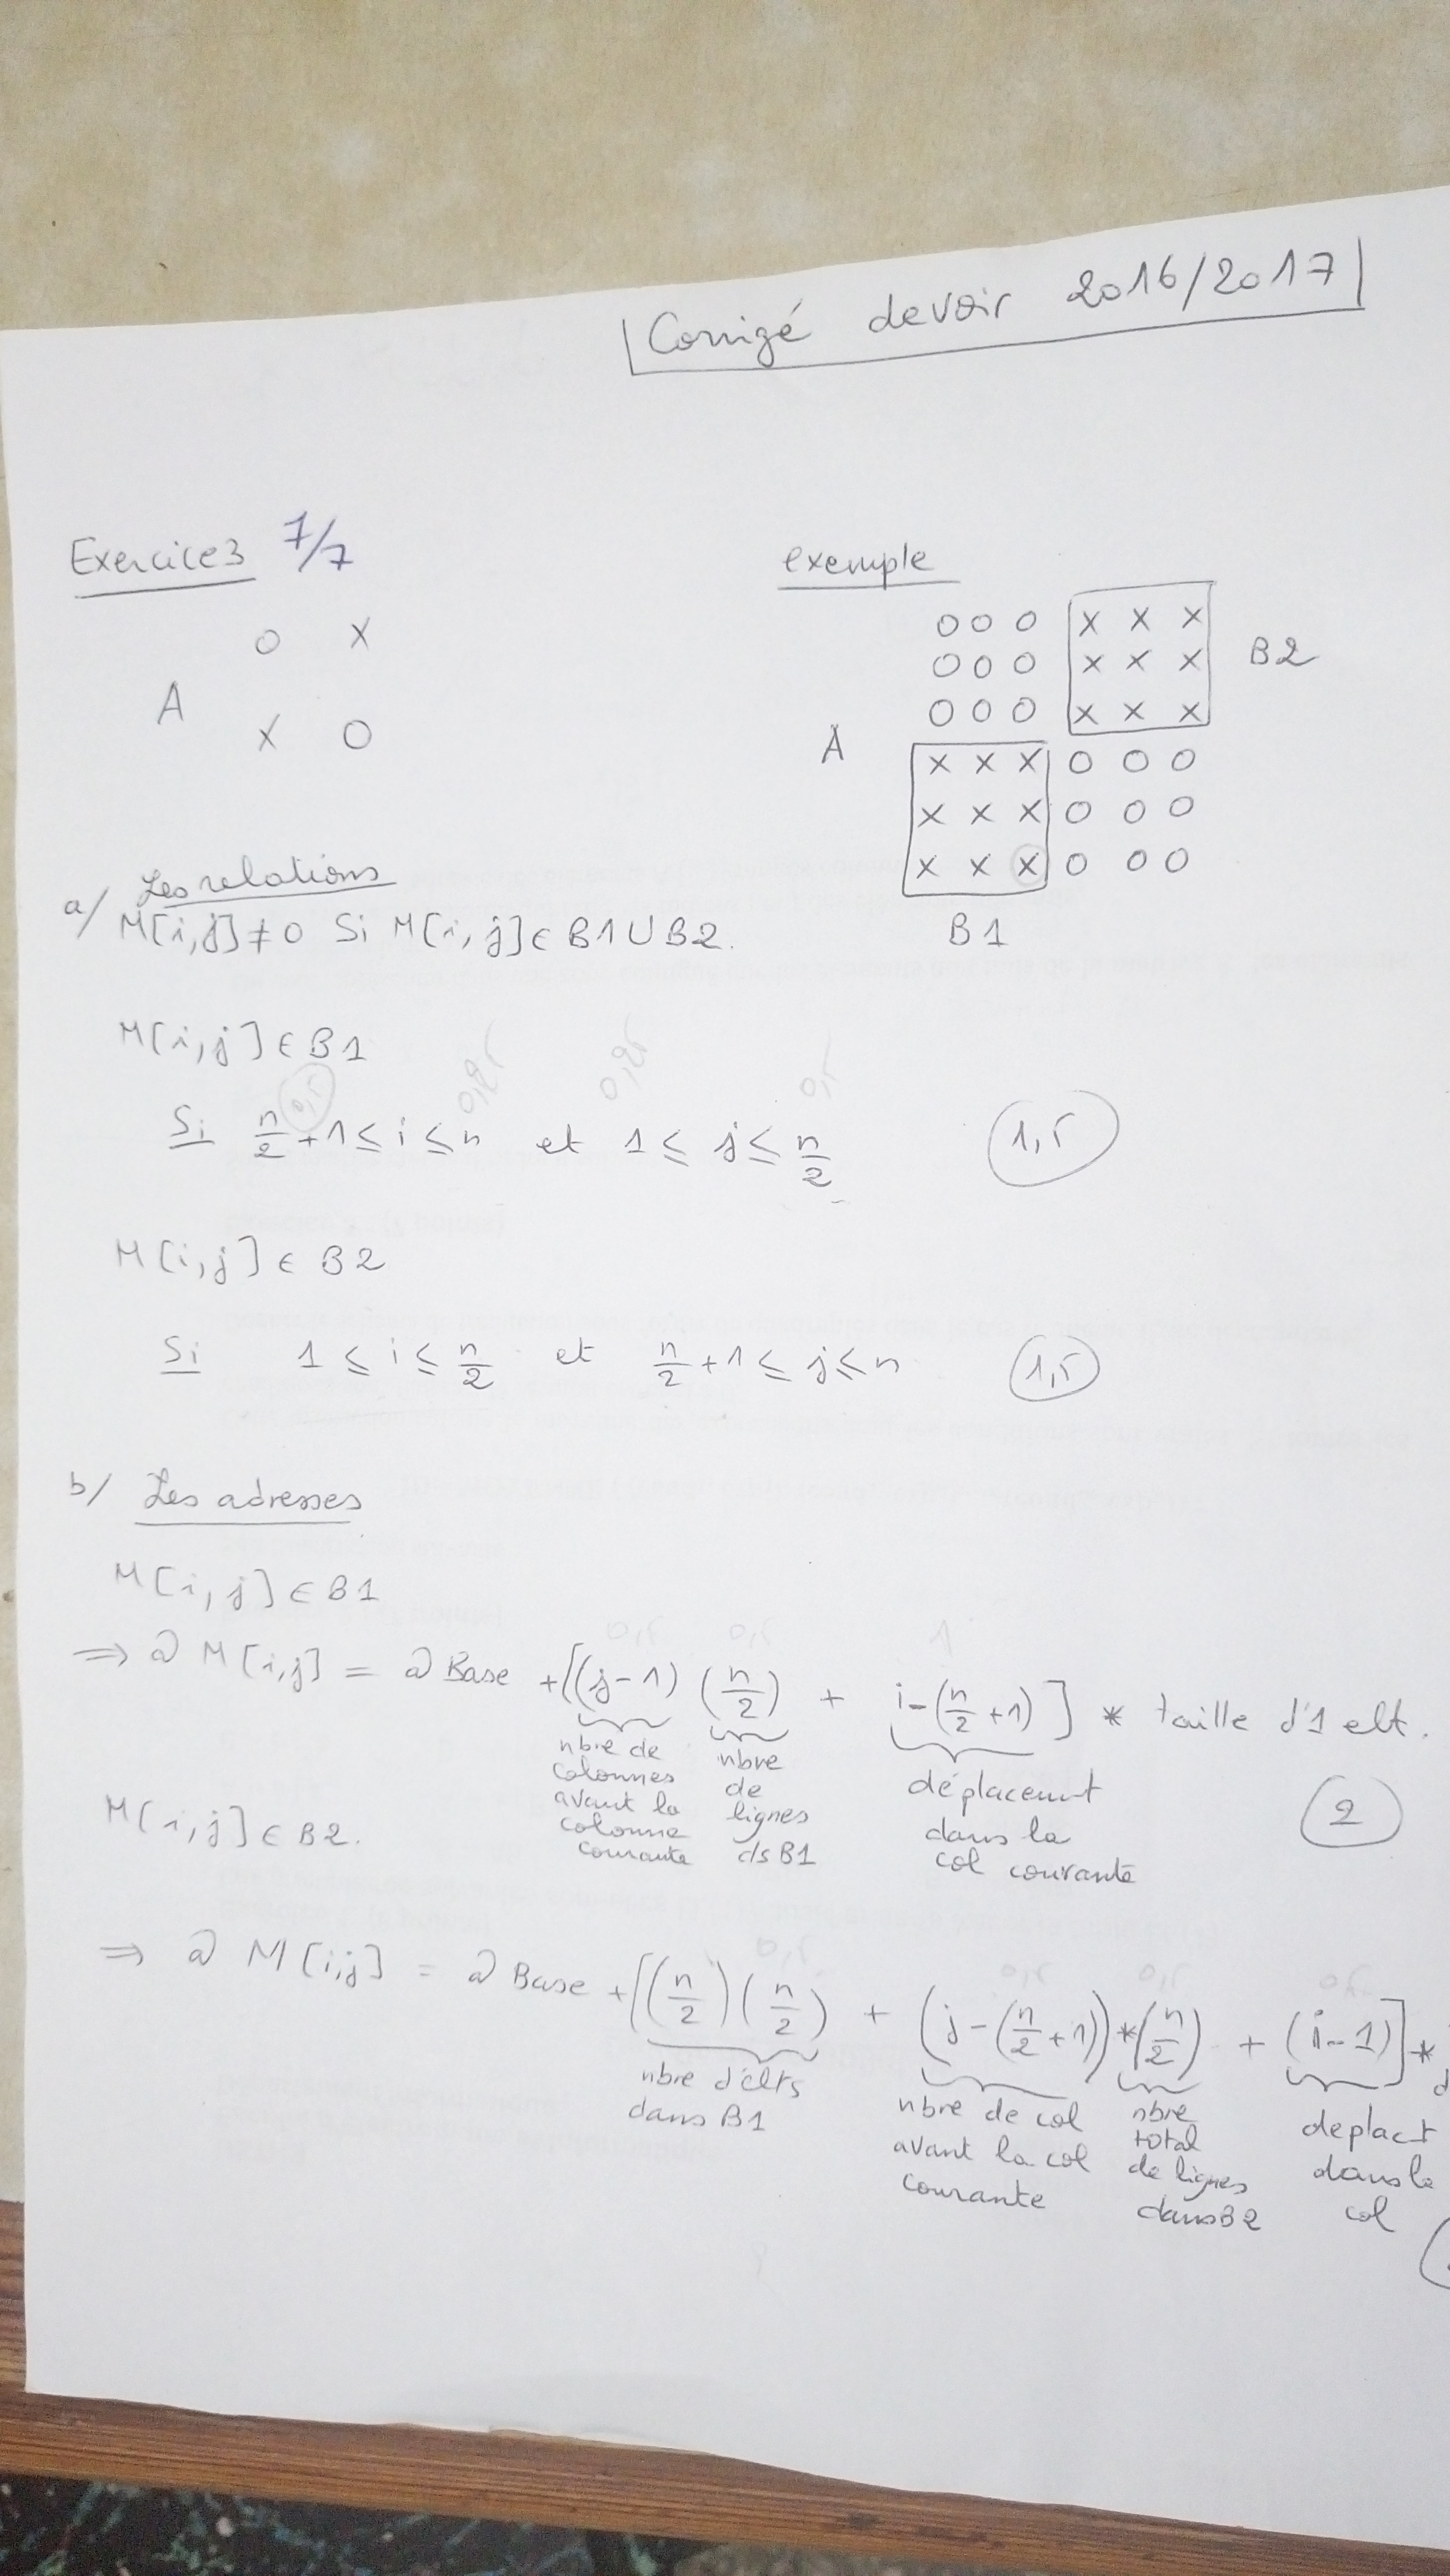 Corrigé devoir 2016/2017
Exercice 3 7/7
exemple
A
O X
X O
A
O O O X X X
O O O X X X
O O O X X X
X X X O O O
X X X O O O
X X X O O O
B2
B1
a/ Les relations
M[i,j] ≠ 0 Si M[i,j] ∈ B1 ∪ B2.
M[i,j] ∈ B1
0,5 0,25 0,25 0,5
Si n/2 + 1 ≤ i ≤ n et 1 ≤ j ≤ n/2 1,5
M[i,j] ∈ B2
Si 1 ≤ i ≤ n/2 et n/2 + 1 ≤ j ≤ n 1,5
b/ Les adresses
M[i,j] ∈ B1
0,5 0,5 1
⇒ @ M[i,j] = @ Base + [(j-1) (n/2) + i-(n/2 +1)] * taille d'1 elt.
nbre de colonnes avant la colonne courante
nbre de lignes ds B1
déplacemt dans la col courante
2
M[i,j] ∈ B2.
0,5 0,5 0,5 0,5
⇒ @ M[i,j] = @ Base + [(n/2)(n/2) + (j-(n/2 +1))*(n/2) + (i-1)] *
nbre d'elts dans B1
nbre de col avant la col courante
nbre total de lignes dans B2
deplact dans la col